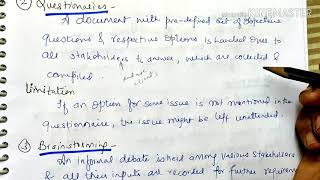 ② Questionaries -
A document with pre-defined set of objective
questions & respective options is handed over to
all stakeholders to answer, which are collected &
compiled.
Limitation
If an option for some issue is not mentioned in the
questionnaire, the issue might be left unattended.
③ Brainstorming -
An informal debate is held among various stakeholders
& all their inputs are recorded for further requirem
KINEMASTER